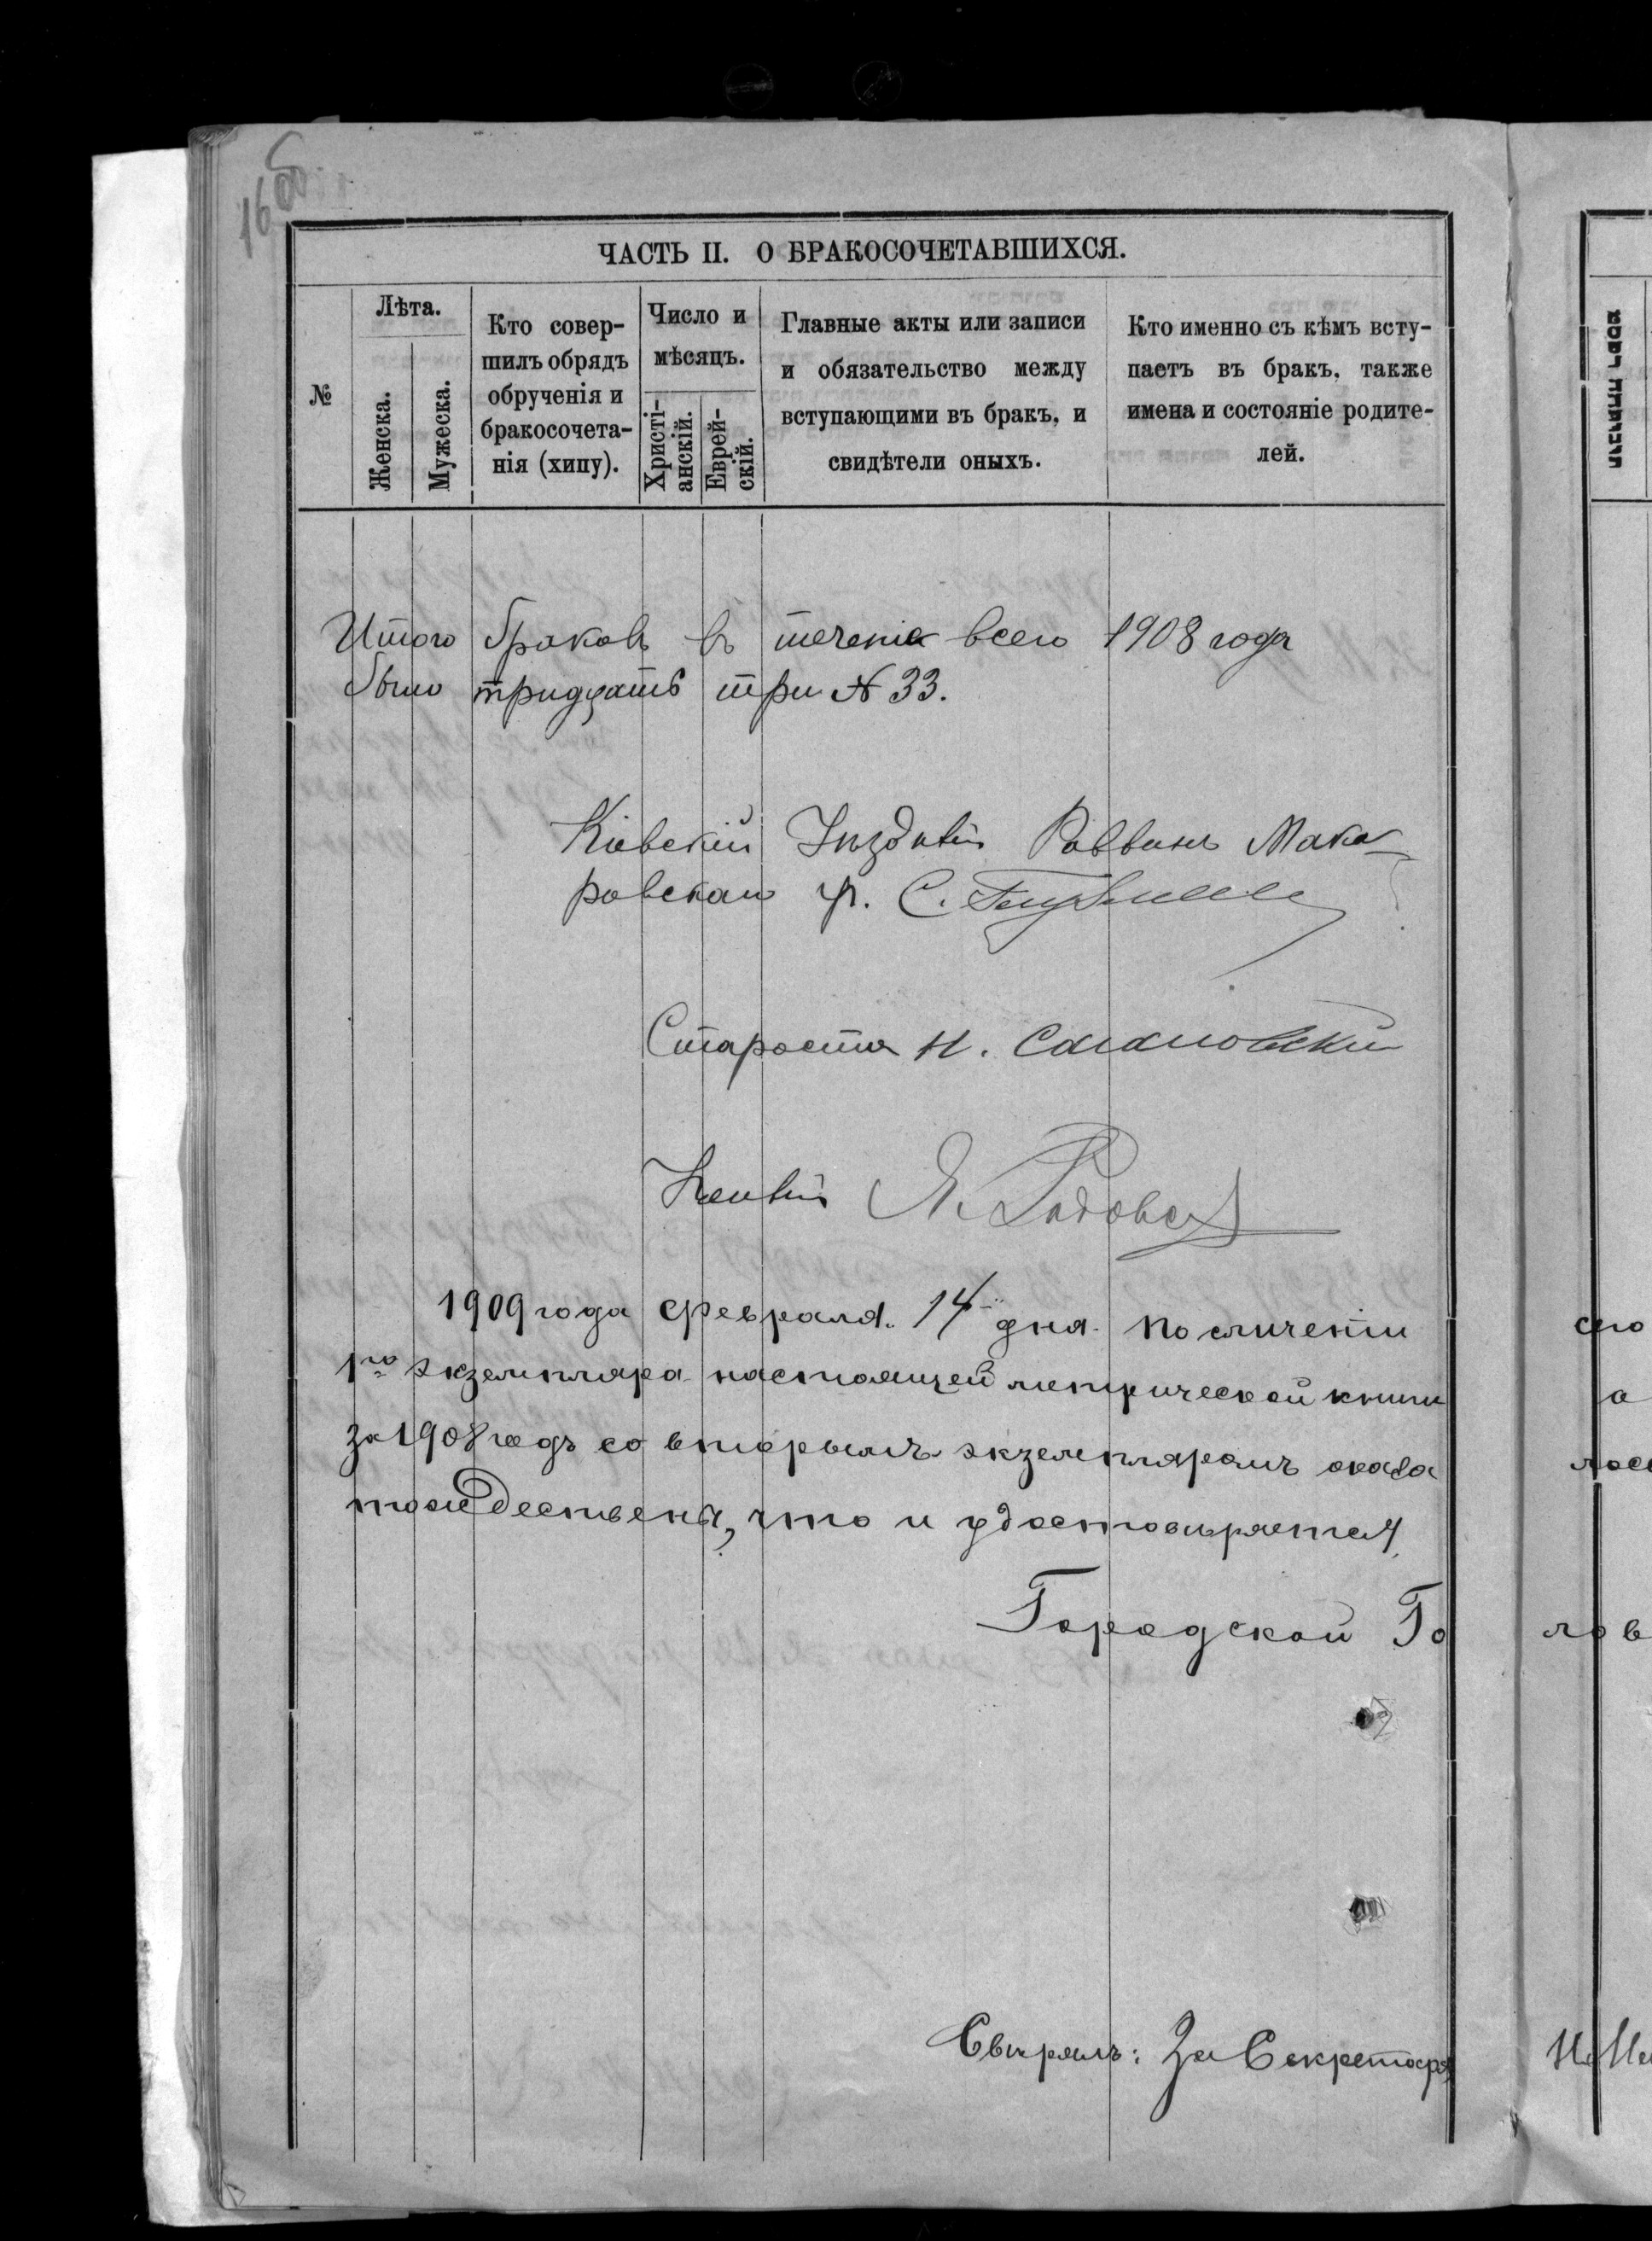 ЧАСТЬ II. О БРАКОСОЧЕТАВШИХСЯ.
№
Лѣта.
Женска.
Мужеска.
Кто совер-
шилъ обрядъ
обрученія и
бракосочета-
нія (хипу).
Число и
мѣсяцъ.
Христі-
анскій.
Еврей-
скій.
Главные акты или записи
и обязательство между
вступающими въ бракъ, и
свидѣтели оныхъ.
Кто именно съ кѣмъ всту-
паетъ въ бракъ, также
имена и состояніе родите-
лей.
Итого браковъ въ теченіе всего 1908 года
было тридцать три № 33.
Кіевскій Уѣздный Раввинъ Мака-
ровскаго р. С.
Староста Н.
1909 года февраля 14 дня по сличеніи сего
1го экземпляра настоящей метрической книги а
за 1908 годъ со вторымъ экземпляромъ оказа лось
тождественъ, что и удостовѣряется
Городской Го лов
Свѣрялъ: За Секретаря